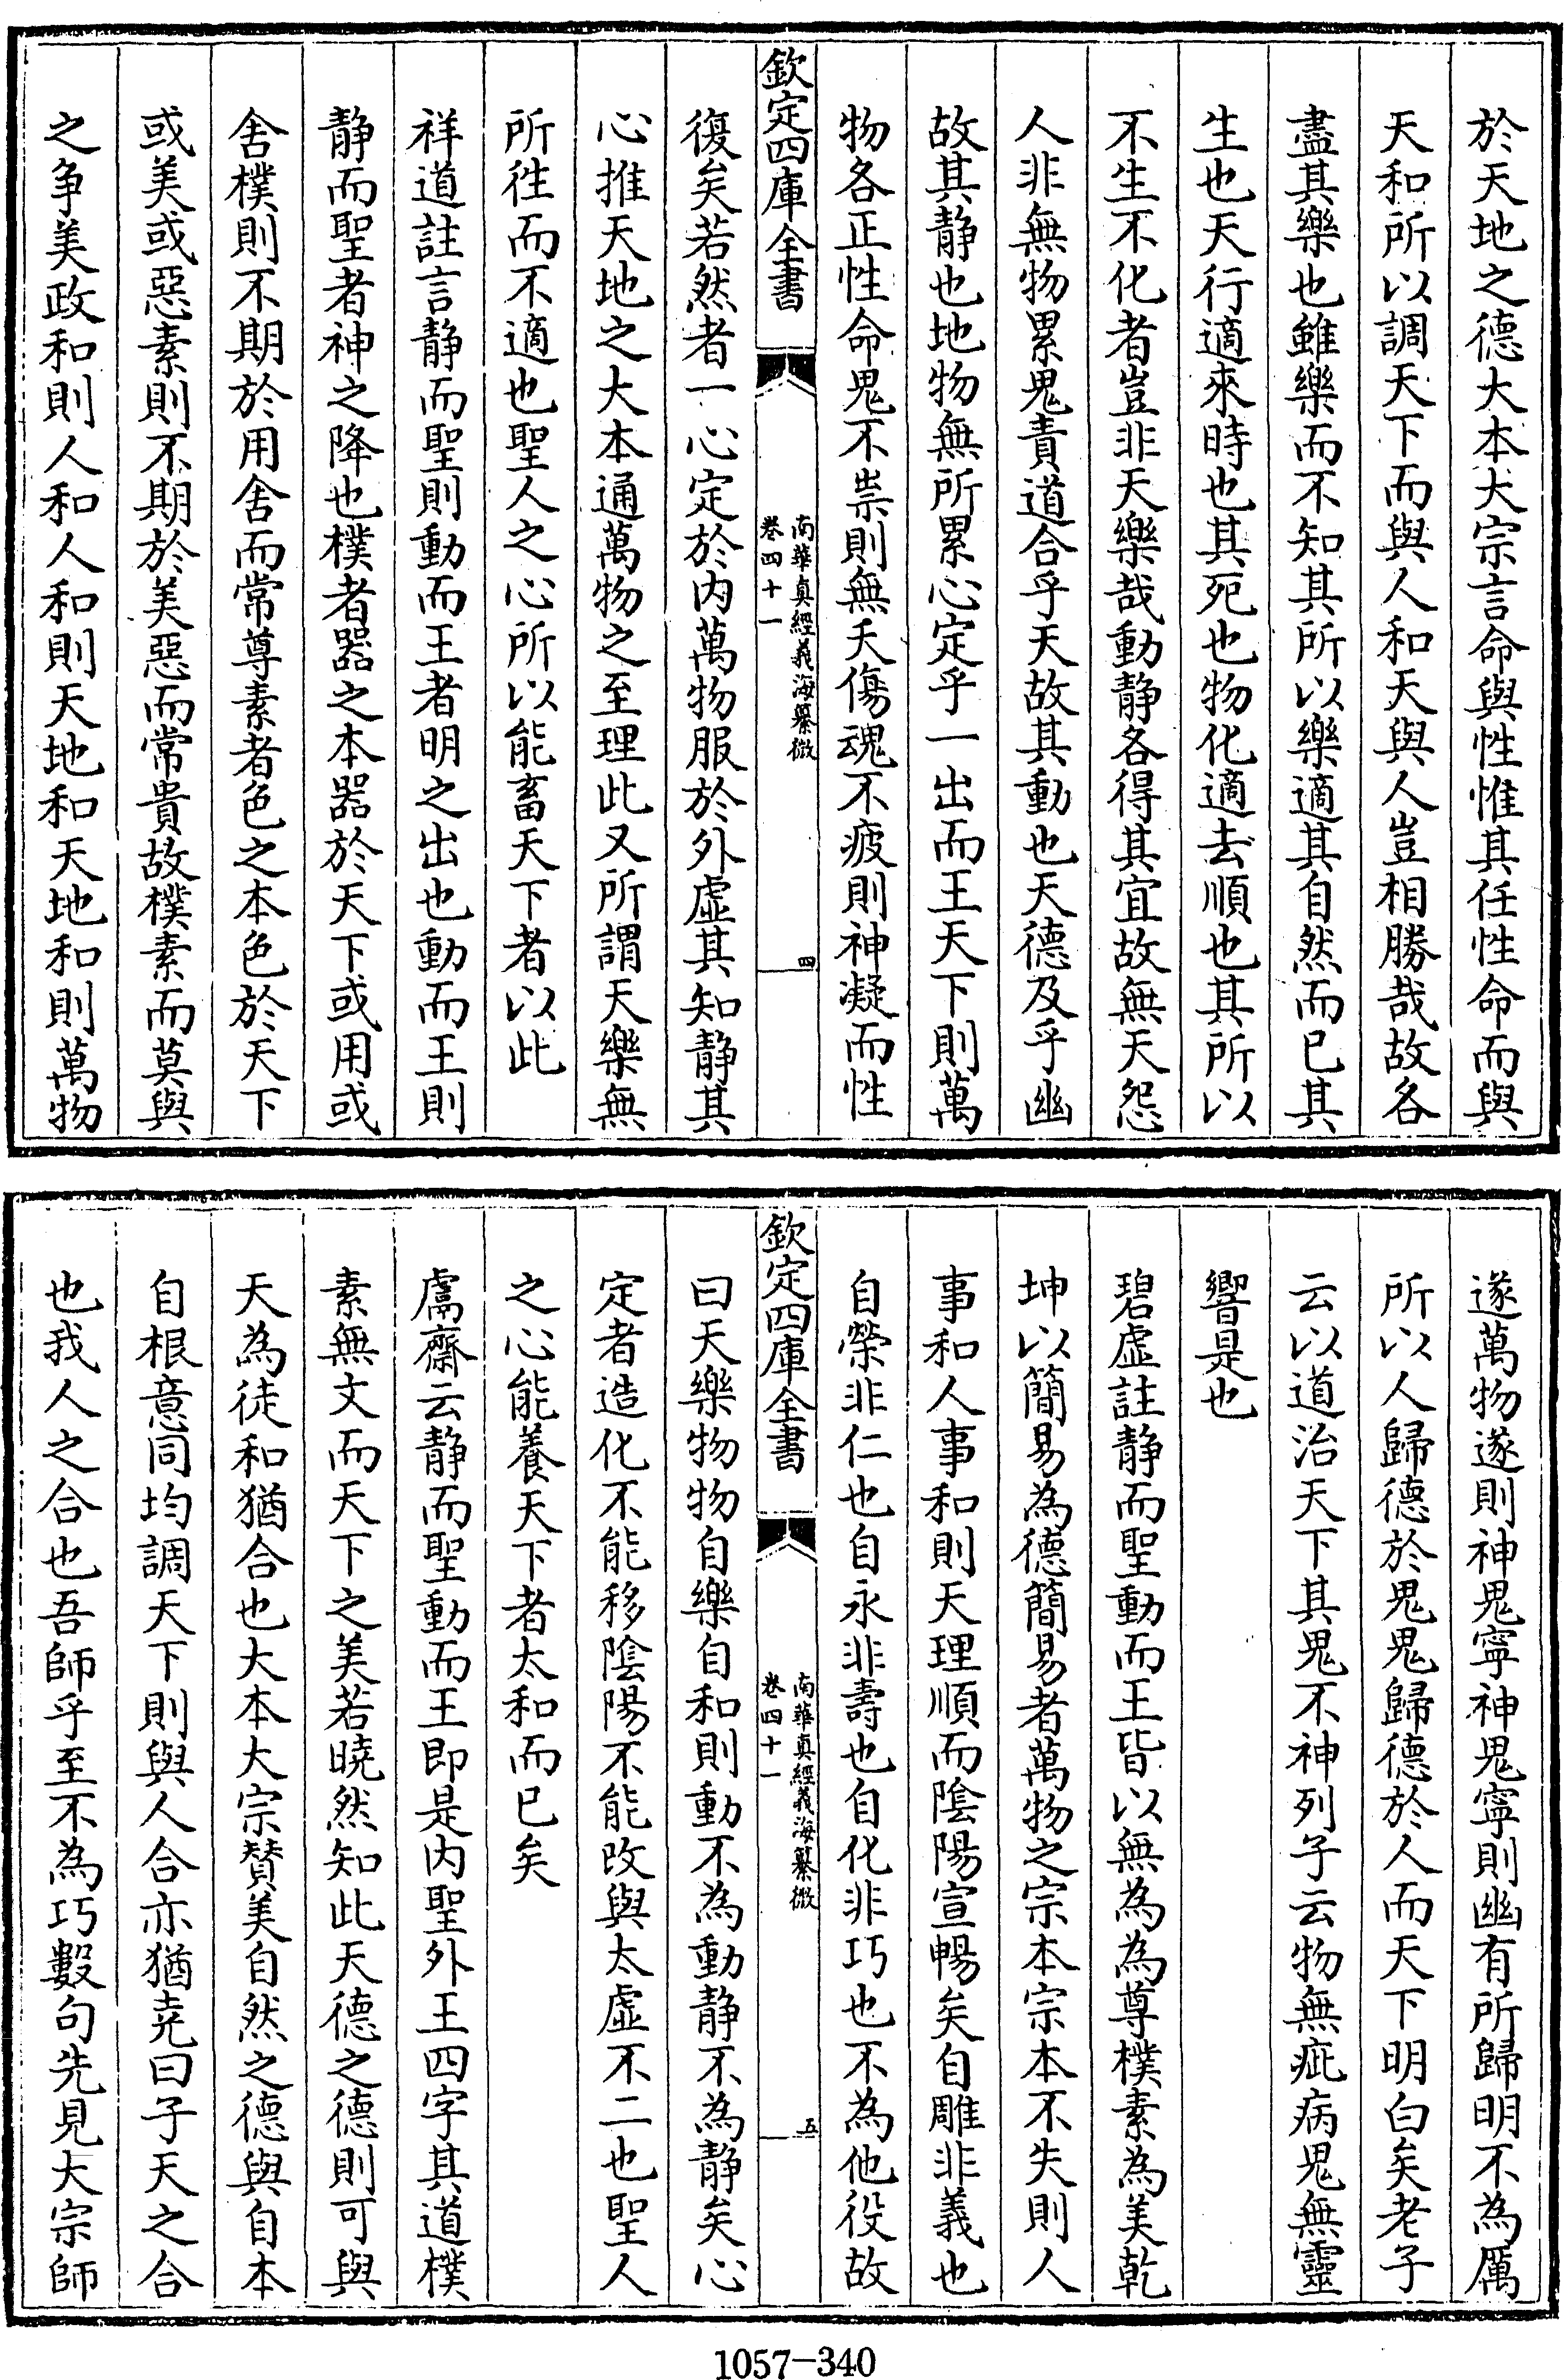 於天地之德大本大宗言命與性惟其任性命而與
天和所以調天下而與人和天與人豈相勝哉故各
盡其樂也雖樂而不知其所以樂適其自然而已其
生也天行適來時也其死也物化適去順也其所以
不生不化者豈非天樂哉動静各得其宜故無天怨
人非無物累鬼責道合乎天故其動也天德及乎幽
故其静也地物無所累心定乎一出而王天下則萬
物各正性命鬼不祟則無夭傷魂不疲則神凝而性
欽定四庫全書
南華真經義海纂微
卷四十一
四
復矣若然者一心定於内萬物服於外虚其知静其
心推天地之大本通萬物之至理此又所謂天樂無
所徃而不適也聖人之心所以能畜天下者以此
祥道註言静而聖則動而王者明之出也動而王則
静而聖者神之降也樸者器之本器於天下或用或
舍樸則不期於用舍而常尊素者色之本色於天下
或美或惡素則不期於美惡而常貴故樸素而莫與
之争美政和則人和人和則天地和天地和則萬物
遂萬物遂則神鬼寧神鬼寧則幽有所歸明不為厲
所以人歸德於鬼鬼歸德於人而天下明白矣老子
云以道治天下其鬼不神列子云物無疵病鬼無靈
響是也
碧虚註静而聖動而王皆以無為為尊樸素為美乾
坤以簡易為德簡易者萬物之宗本宗本不失則人
事和人事和則天理順而陰陽宣暢矣自雕非義也
自榮非仁也自永非壽也自化非巧也不為他役故
欽定四庫全書
南華真經義海纂微
卷四十一
五
曰天樂物物自樂自和則動不為動静不為静矣心
定者造化不能移陰陽不能改與太虚不二也聖人
之心能養天下者太和而已矣
鬳齋云静而聖動而王即是内聖外王四字其道樸
素無文而天下之美若曉然知此天德之德則可與
天為徒和猶合也大本大宗賛美自然之德與自本
自根意同均調天下則與人合亦猶堯曰子天之合
也我人之合也吾師乎至不為巧數句先見大宗師
1057-340